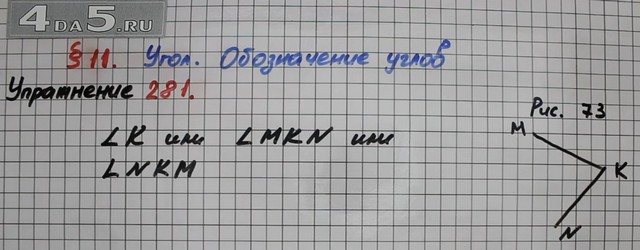 4DA5.RU
§ 11. Угол. Обозначение углов
Упражнение 281.
∠K или ∠MKN или
∠NKM
Рис. 73
M
K
N